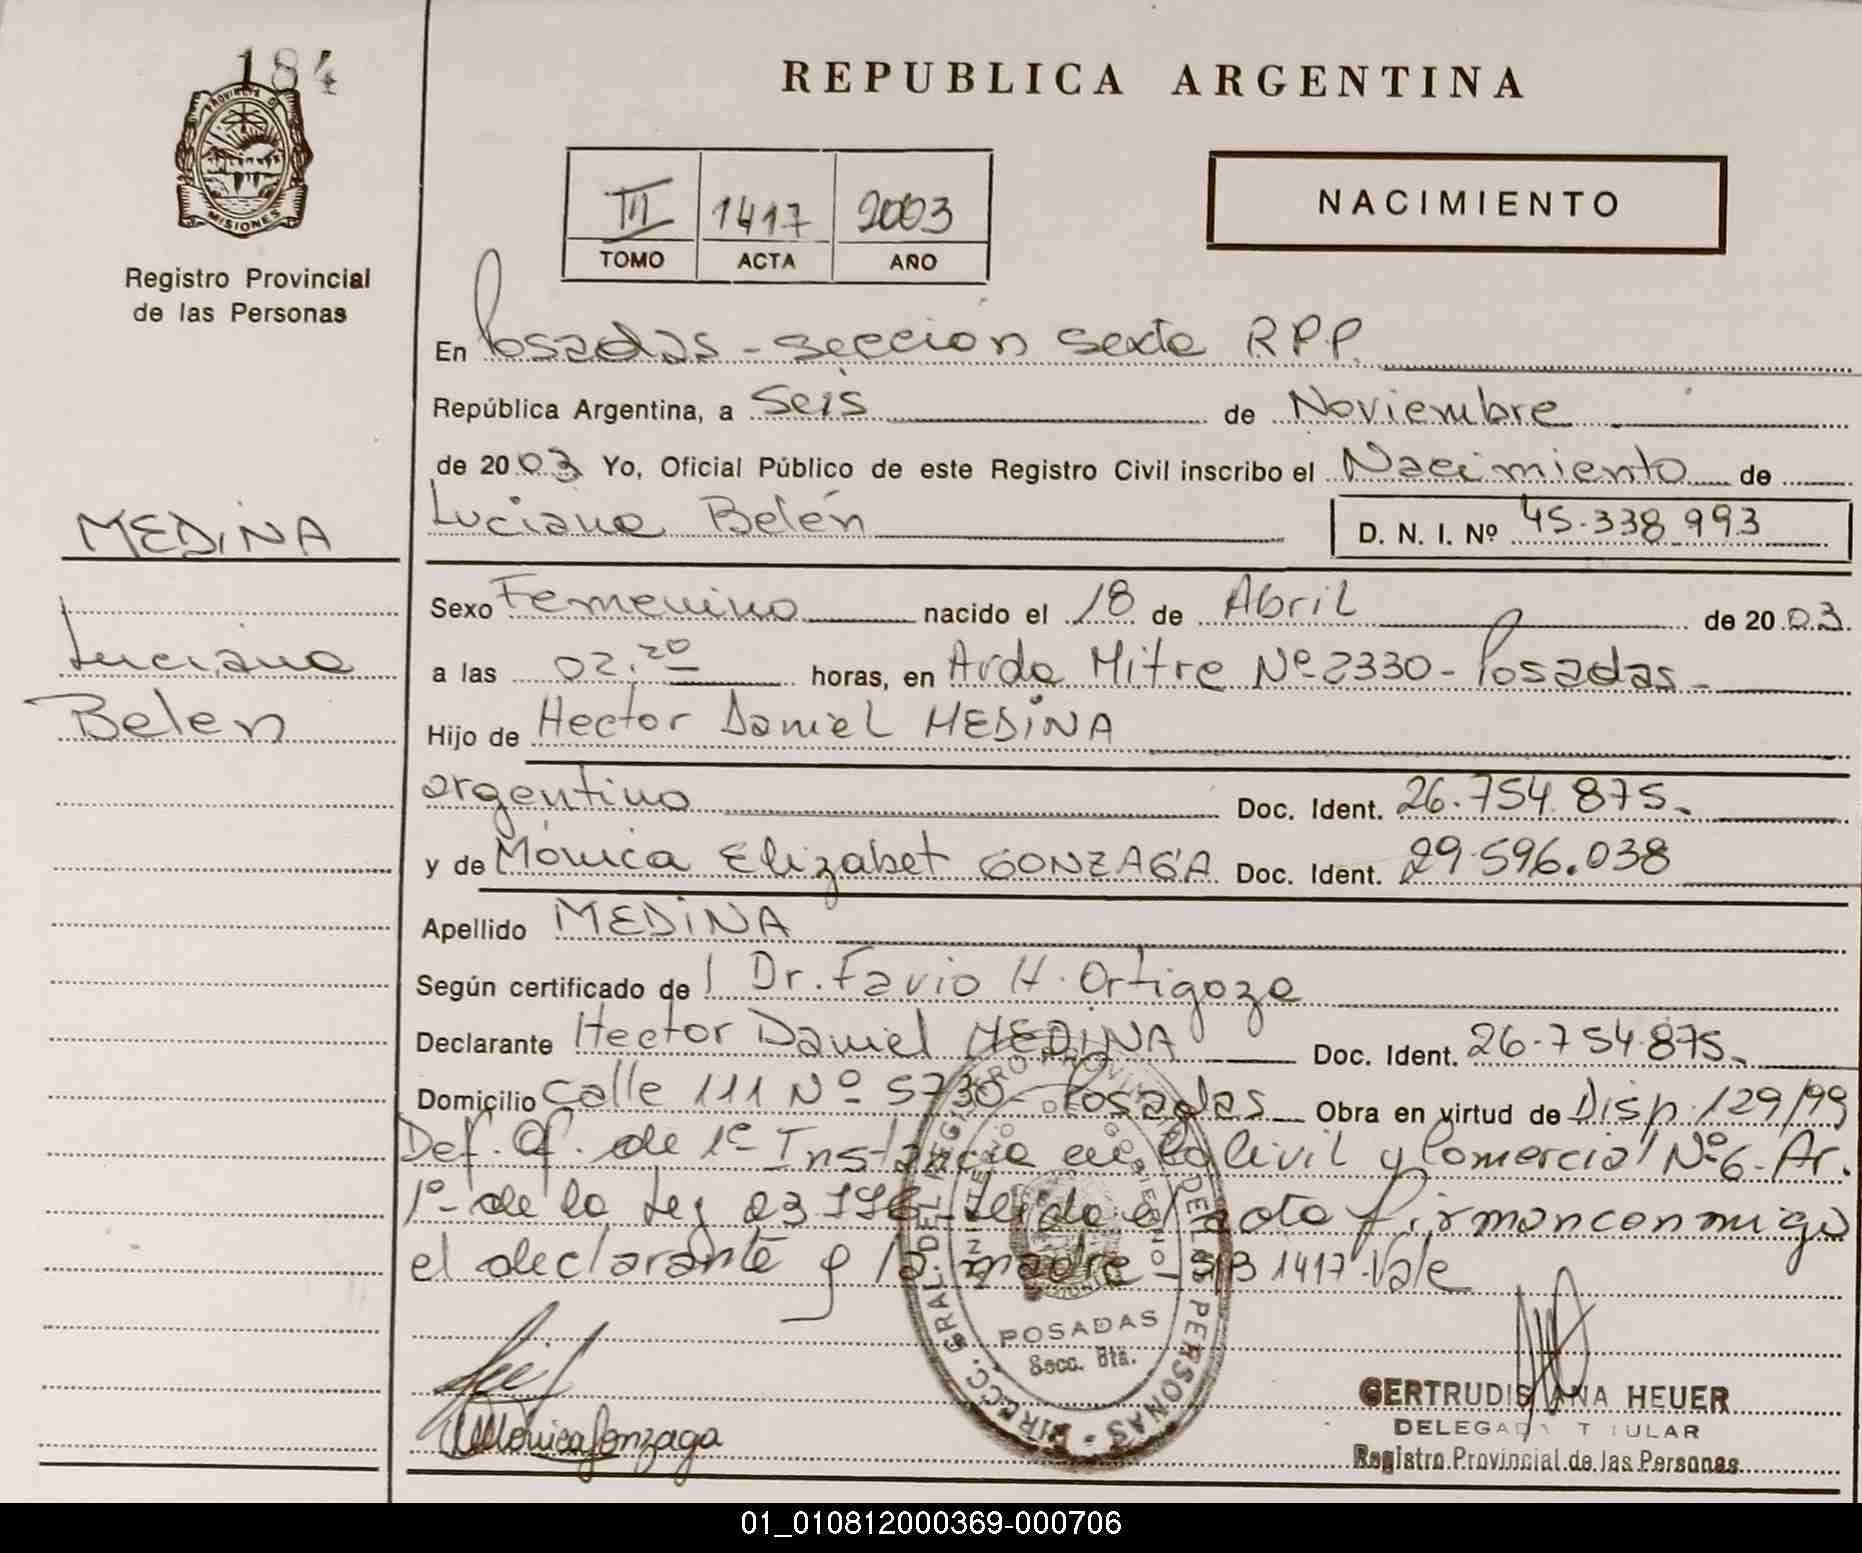 184
PROVINCIA D
MISIONES
Registro Provincial
de las Personas
REPUBLICA ARGENTINA
III 1417 2003
TOMO ACTA AÑO
NACIMIENTO
En Posadas - sección sexta R.P.P.
República Argentina, a Seis de Noviembre
de 2003 Yo, Oficial Público de este Registro Civil inscribo el Nacimiento de
Luciana Belén
D. N. I. Nº 45.338.993
MEDINA
Luciana
Belen
Sexo Femenino nacido el 18 de Abril de 2003.
a las 02.20 horas, en Avda Mitre Nº 2330 - Posadas -
Hijo de Hector Daniel MEDINA
argentino Doc. Ident. 26.754.875.
y de Mónica Elizabet GONZAGA Doc. Ident. 29.596.038
Apellido MEDINA
Según certificado de Dr. Favio H. Ortigoza
Declarante Hector Daniel MEDINA Doc. Ident. 26.754.875.
Domicilio Calle 111 Nº 5730 - Posadas Obra en virtud de Disp. 129/99
Def. Of. de 1º Instancia en lo Civil y Comercial Nº 6 - Ar.
1º de la Ley 23 leida el acta firman conmigo
el declarante y la madre - 1417. Vale
DIRECC. GRAL. DEL REGISTRO PROVINCIAL DE LAS PERSONAS
MINISTERIO DE GOBIERNO
POSADAS
Secc. 6ta.
Mónica Gonzaga
GERTRUDIS ANA HEUER
DELEGADA TITULAR
Registro Provincial de las Personas
01_010812000369-000706